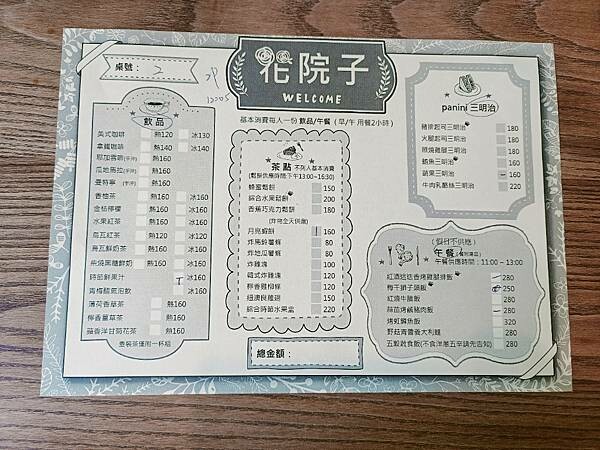 花院子
WELCOME
桌號：2
基本消費每人一份 飲品/午餐（早/午 用餐2小時）
飲品
美式咖啡 熱120 冰130
拿鐵咖啡 熱140 冰140
耶加雪啡(手沖) 熱160
瓜地馬拉(手沖) 熱160
曼特寧 (手沖) 熱160
香柚茶 熱160 冰160
金桔檸檬 熱160 冰160
水果紅茶 熱160 冰160
烏瓦紅茶 熱120 冰120
烏瓦鮮奶茶 熱160 冰160
柴燒黑糖鮮奶 熱160 冰160
時節鮮果汁 冰160
青梅醋氣泡飲 冰160
薄荷香草茶 熱160
檸香薑草茶 熱160
蘋香洋甘菊花茶 熱160
壺裝茶僅附一杯組
茶點 不列入基本消費
(鬆餅供應時間下午13:00~16:30)
蜂蜜鬆餅 150
綜合水果鬆餅 200
香蕉巧克力鬆餅 180
(炸物全天供應)
月亮蝦餅 160
炸馬鈴薯條 80
炸地瓜薯條 80
炸雞塊 100
韓式炸雞塊 120
檸香雞柳條 120
紐澳良雞翅 150
綜合時節水果盒 220
總金額：
panini 三明治
豬排起司三明治 180
火腿起司三明治 180
照燒雞腿三明治 180
鮪魚三明治 160
蘋果三明治 160
牛肉乳酪絲三明治 220
(假日不供應)
午餐
午餐供應時間：11:00－13:00
紅酒迷迭香烤雞腿排飯 280
梅干獅子頭飯 250
紅燒牛腩飯 280
蒜苗烤鹹豬肉飯 280
烤虹鱒魚飯 320
野菇青醬義大利麵 280
五穀蔬食飯(不食洋蔥五辛請先告知) 280